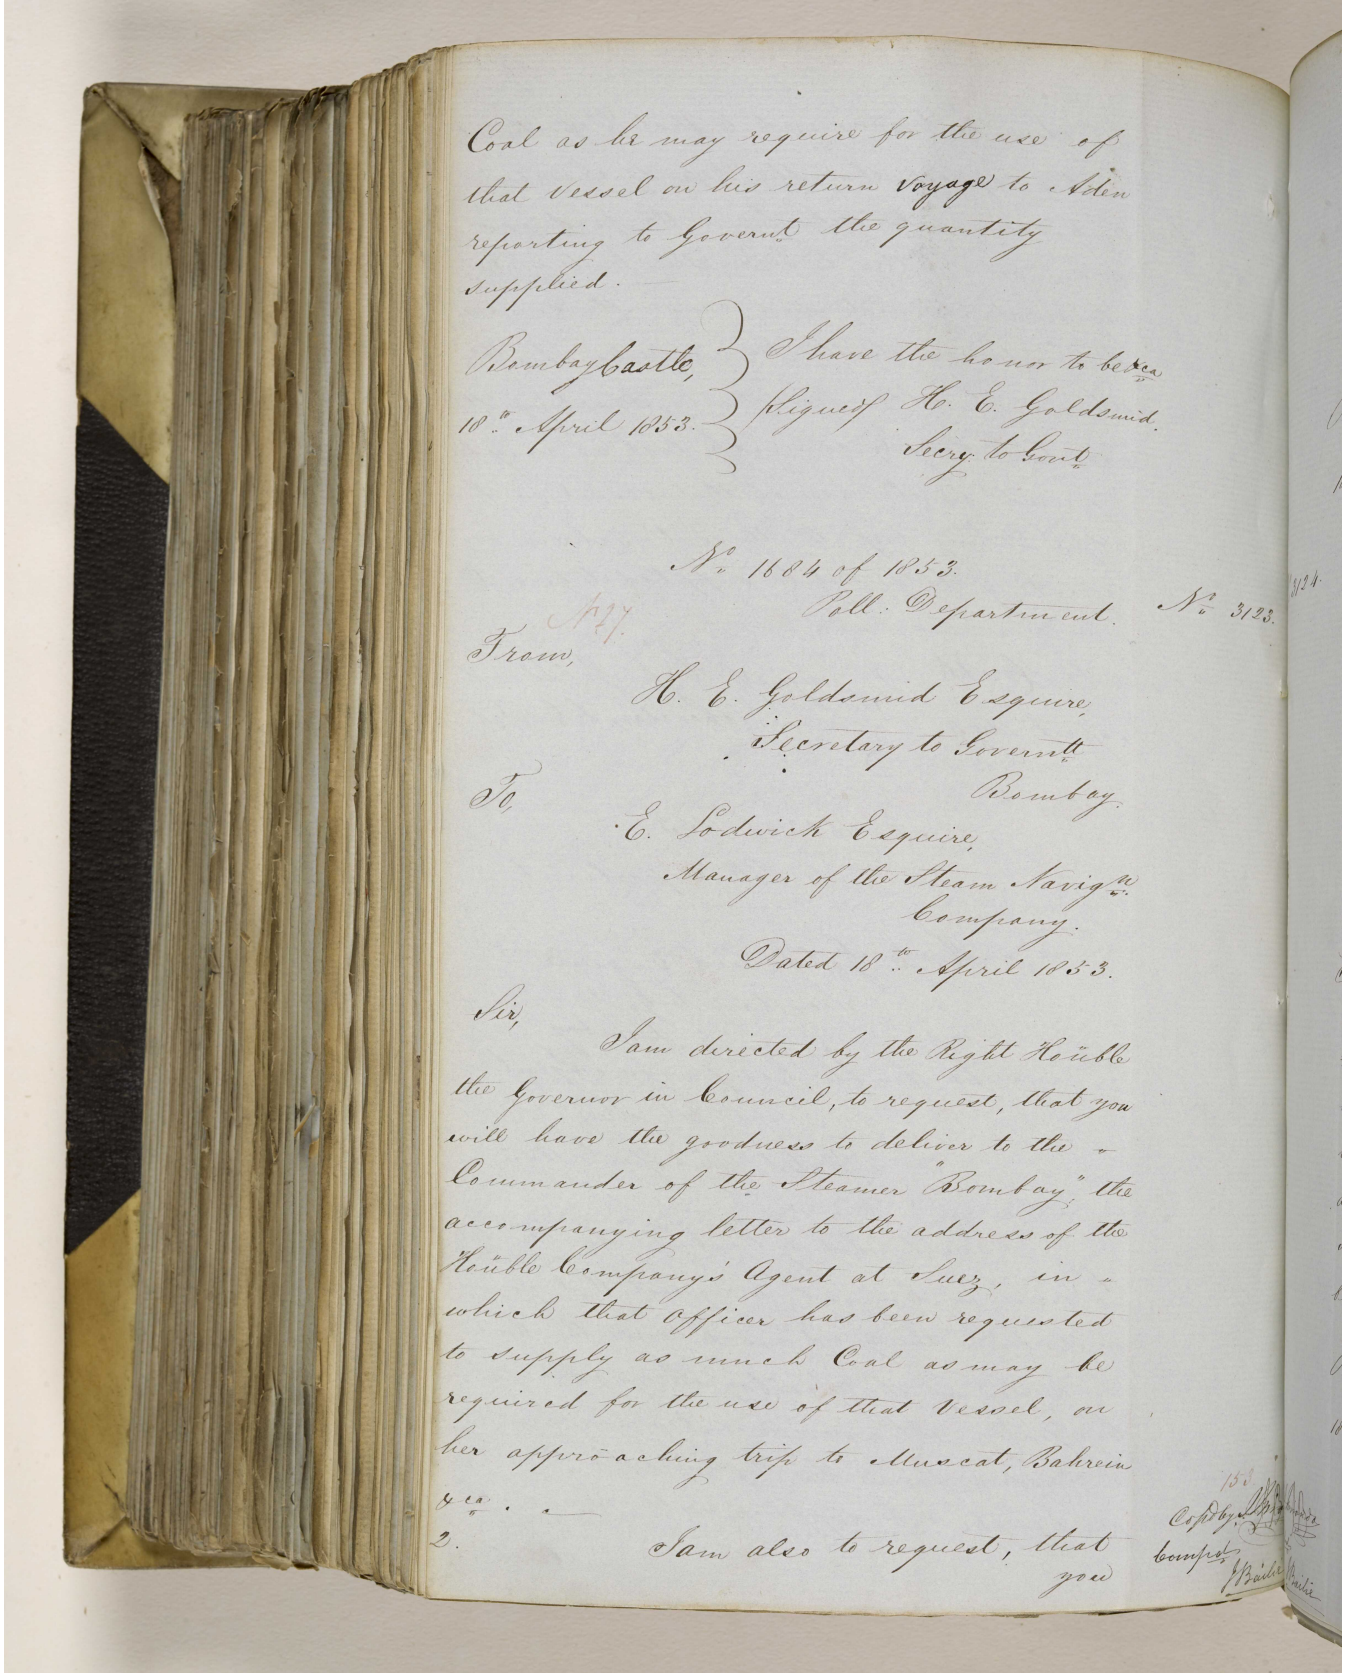 Coal as he may require for the use of
that Vessel on his return voyage to Aden
reporting to Governt the quantity
supplied. —
Bombay Castle, I have the honor to be &ca
18th April 1853. (Signed) H. E. Goldsmid.
Secry. to Govt
No 1684 of 1853.
Poll: Department. No 3123.
3124.
No 27.
From,
H. E. Goldsmid Esquire,
Secretary to Governtt
Bombay.
To,
E. Lodwick Esquire,
Manager of the Steam Navign
Company.
Dated 18th April 1853.
Sir,
I am directed by the Right Honble
the Governor in Council, to request, that you
will have the goodness to deliver to the "
Commander of the Steamer "Bombay", the
accompanying letter to the address of the
Honble Company's Agent at Suez, in "
which that officer has been requested
to supply as much Coal as may be
required for the use of that Vessel, on
her approaching trip to Muscat, Bahrein
&ca . —
2. I am also to request, that
you
153
Copd by
Compd
J Bailie